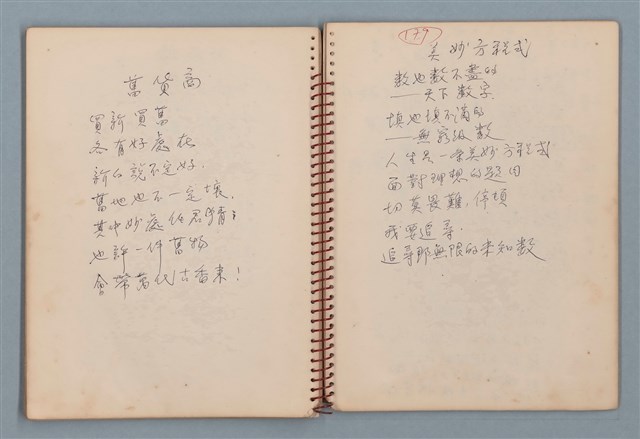 舊貨商
買新買舊
各有好處在
新的說不定好.
舊地也不一定壞.
其中妙處任君猜;
也許一件舊物
會帶萬代古香來!
179
美妙方程式
数也数不盡的
——天下数字.
填也填不滿的
——無窮級数
人生是一条美妙方程式
面對理想的題目
切莫畏難,停頓
我要追尋.
追尋那無限的未知数